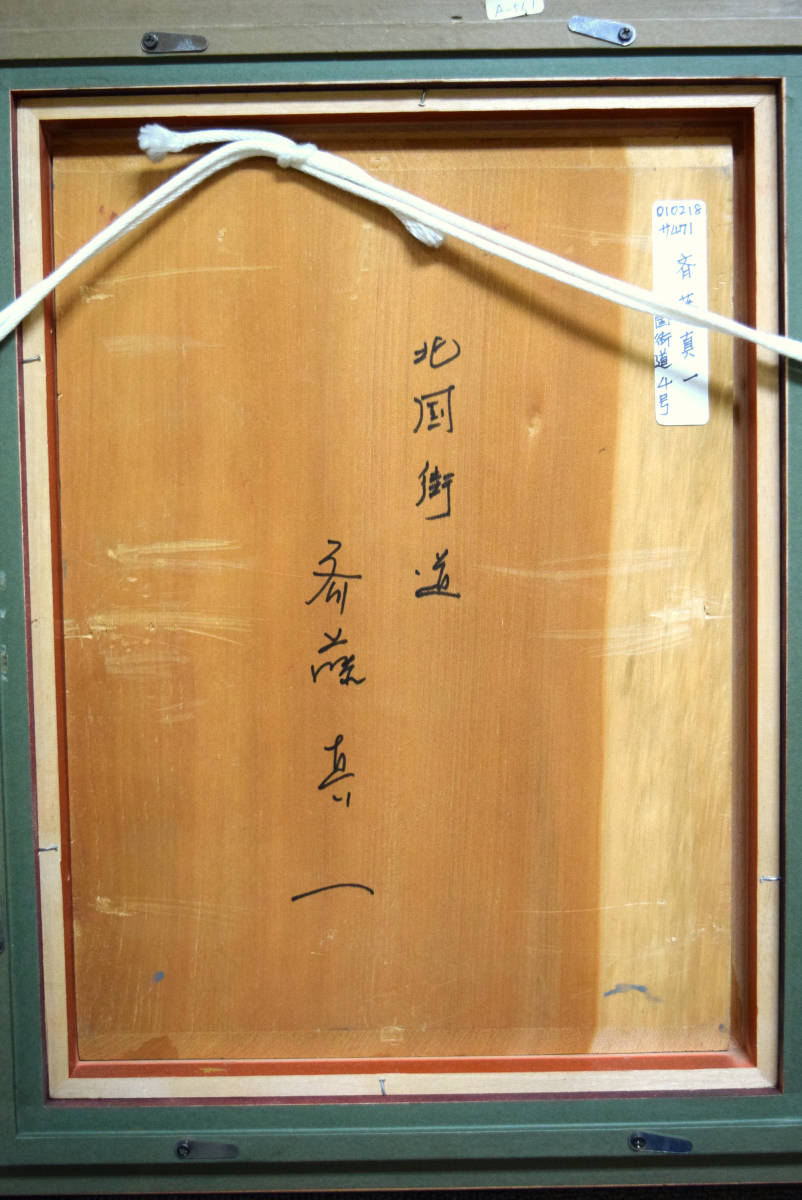 010218
サム71
斉藤真一
国街道4号
北国街道
斉藤真一